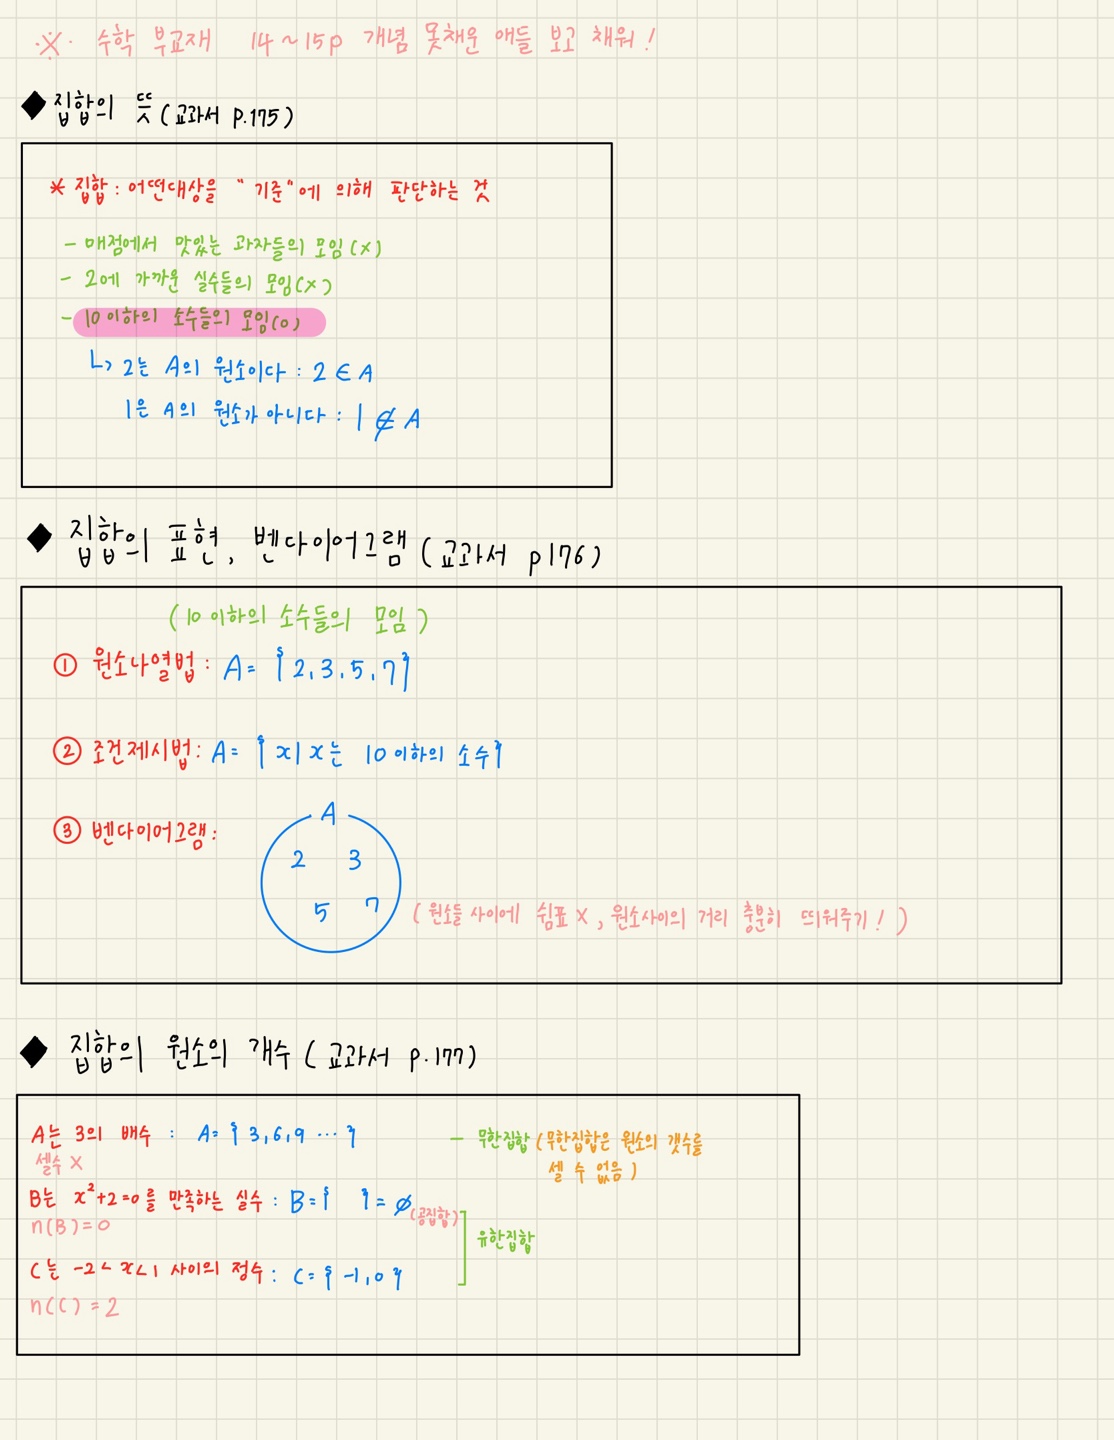 ※ 수학 부교재 14~15p 개념 못채운 애들 보고 채워!
◆ 집합의 뜻 (교과서 p.175)
* 집합 : 어떤대상을 "기준"에 의해 판단하는 것
- 매점에서 맛있는 과자들의 모임(x)
- 2에 가까운 실수들의 모임(x)
- 10이하의 소수들의 모임(o)
↳ 2는 A의 원소이다 : 2 ∈ A
1은 A의 원소가 아니다 : 1 ∉ A
◆ 집합의 표현, 벤다이어그램 (교과서 p176)
(10이하의 소수들의 모임)
① 원소나열법 : A = {2, 3, 5, 7}
② 조건제시법 : A = {x | x는 10이하의 소수}
③ 벤다이어그램 :
A
2 3
5 7
(원소들 사이에 쉼표 X, 원소사이의 거리 충분히 띄워주기! )
◆ 집합의 원소의 개수 (교과서 p.177)
A는 3의 배수 : A = {3, 6, 9 ⋯ } - 무한집합 (무한집합은 원소의 갯수를
셀 수 없음)
셀수 X
B는 x²+2=0를 만족하는 실수 : B = { } = ∅ (공집합)
n(B) = 0
유한집합
C는 -2 < x < 1 사이의 정수 : C = {-1, 0}
n(C) = 2